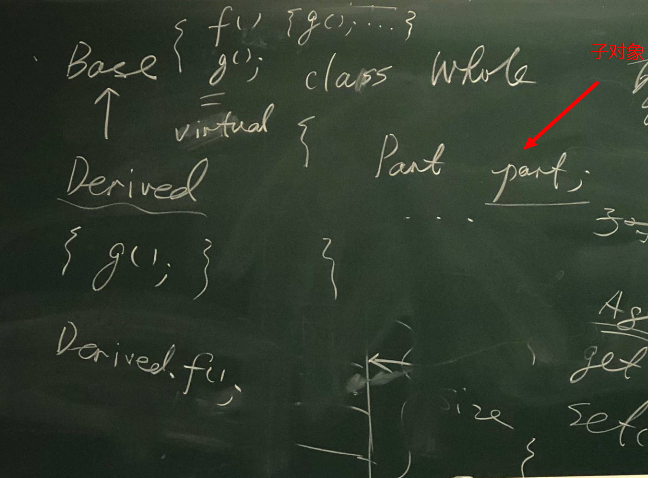 Base { f() {g();....}
g();
virtual
Derived
{ g(); }
Derived.f();
class Whole
{
Part part;
....
}
了对象
size
get
Set(